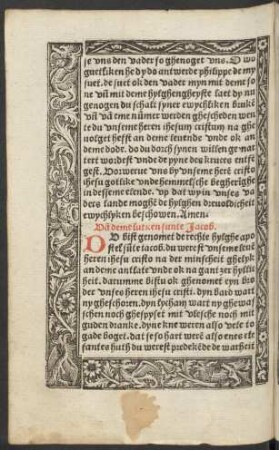 je vns den vader so ghenoget vns. O wo
gutliken he dy do antwerde philippe de my
suet. de suet ok den vader myn mit deme so
ne vñ mit deme hylghengheyste laet dy nu
genogen du schalt syner ewychliken bruke
vñ vã eme nũmer werden ghescheden wen
te du vnseme heren ihesum cristum na ghe
volget hefft an deme leuende vnde ok an
deme dode. do du dorch synen willen ge mar
tert wordest vnde de pyne des kruces entf
gest. Vorwerue vns by vnseme herẽ cristo
ihesu gotlike vnde hemmelsche begherlicheyt
in desseme elende. vp dat wy in vnses va
ders lande moghẽ de hylghen drevoldicheit
ewychlyken beschowen. Amen.
Vã deme lutken sunte Jacob.
DU bist genomet de rechte hylghe apo
stel sũte iacob. du werest vnseme leuẽ
heren ihesu cristo na der minscheit ghelyk
an deme antlate vnde ok na gantzer hylli
heit. darumme bistu ok ghenomet eyn bro
der vnses heren ihesu cristi. dyn bard wart
ny gheschoren. dyn lycham wart ny ghewa
schen noch ghespyset mit vlesche noch mit
guden dranke. dyne kne weren also vele to
gade boget. dat se so hart werẽ also enes ele
fantes huth du werest predekẽde de warheit